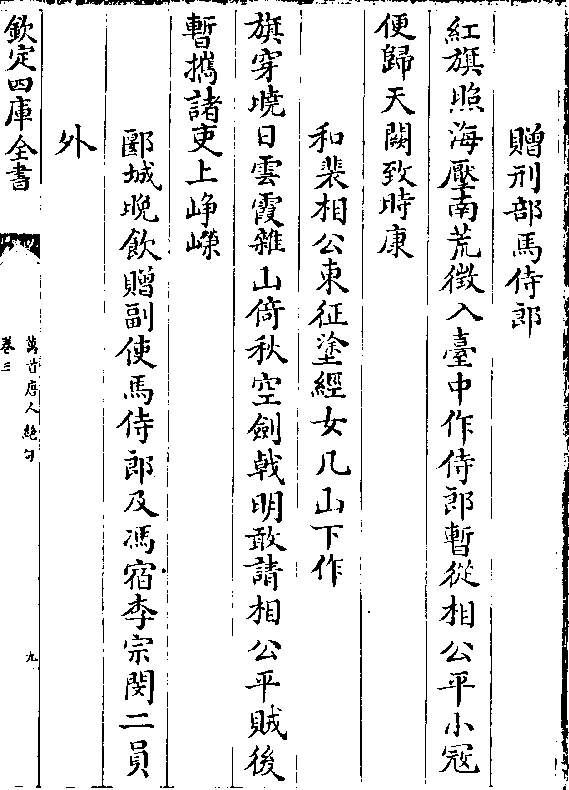 贈刑部馬侍郎
紅旗照海壓南荒徴入臺中作侍郎暫從相公平小冦
便歸天闕致時康
和裴相公東征塗經女几山下作
旗穿曉日雲霞雜山倚秋空劍戟明敢請相公平賊後
暫攜諸吏上崢嶸
郾城晚飲贈副使馬侍郎及馮宿李宗閔二員
外
欽定四庫全書
萬首唐人絶句
卷三
九